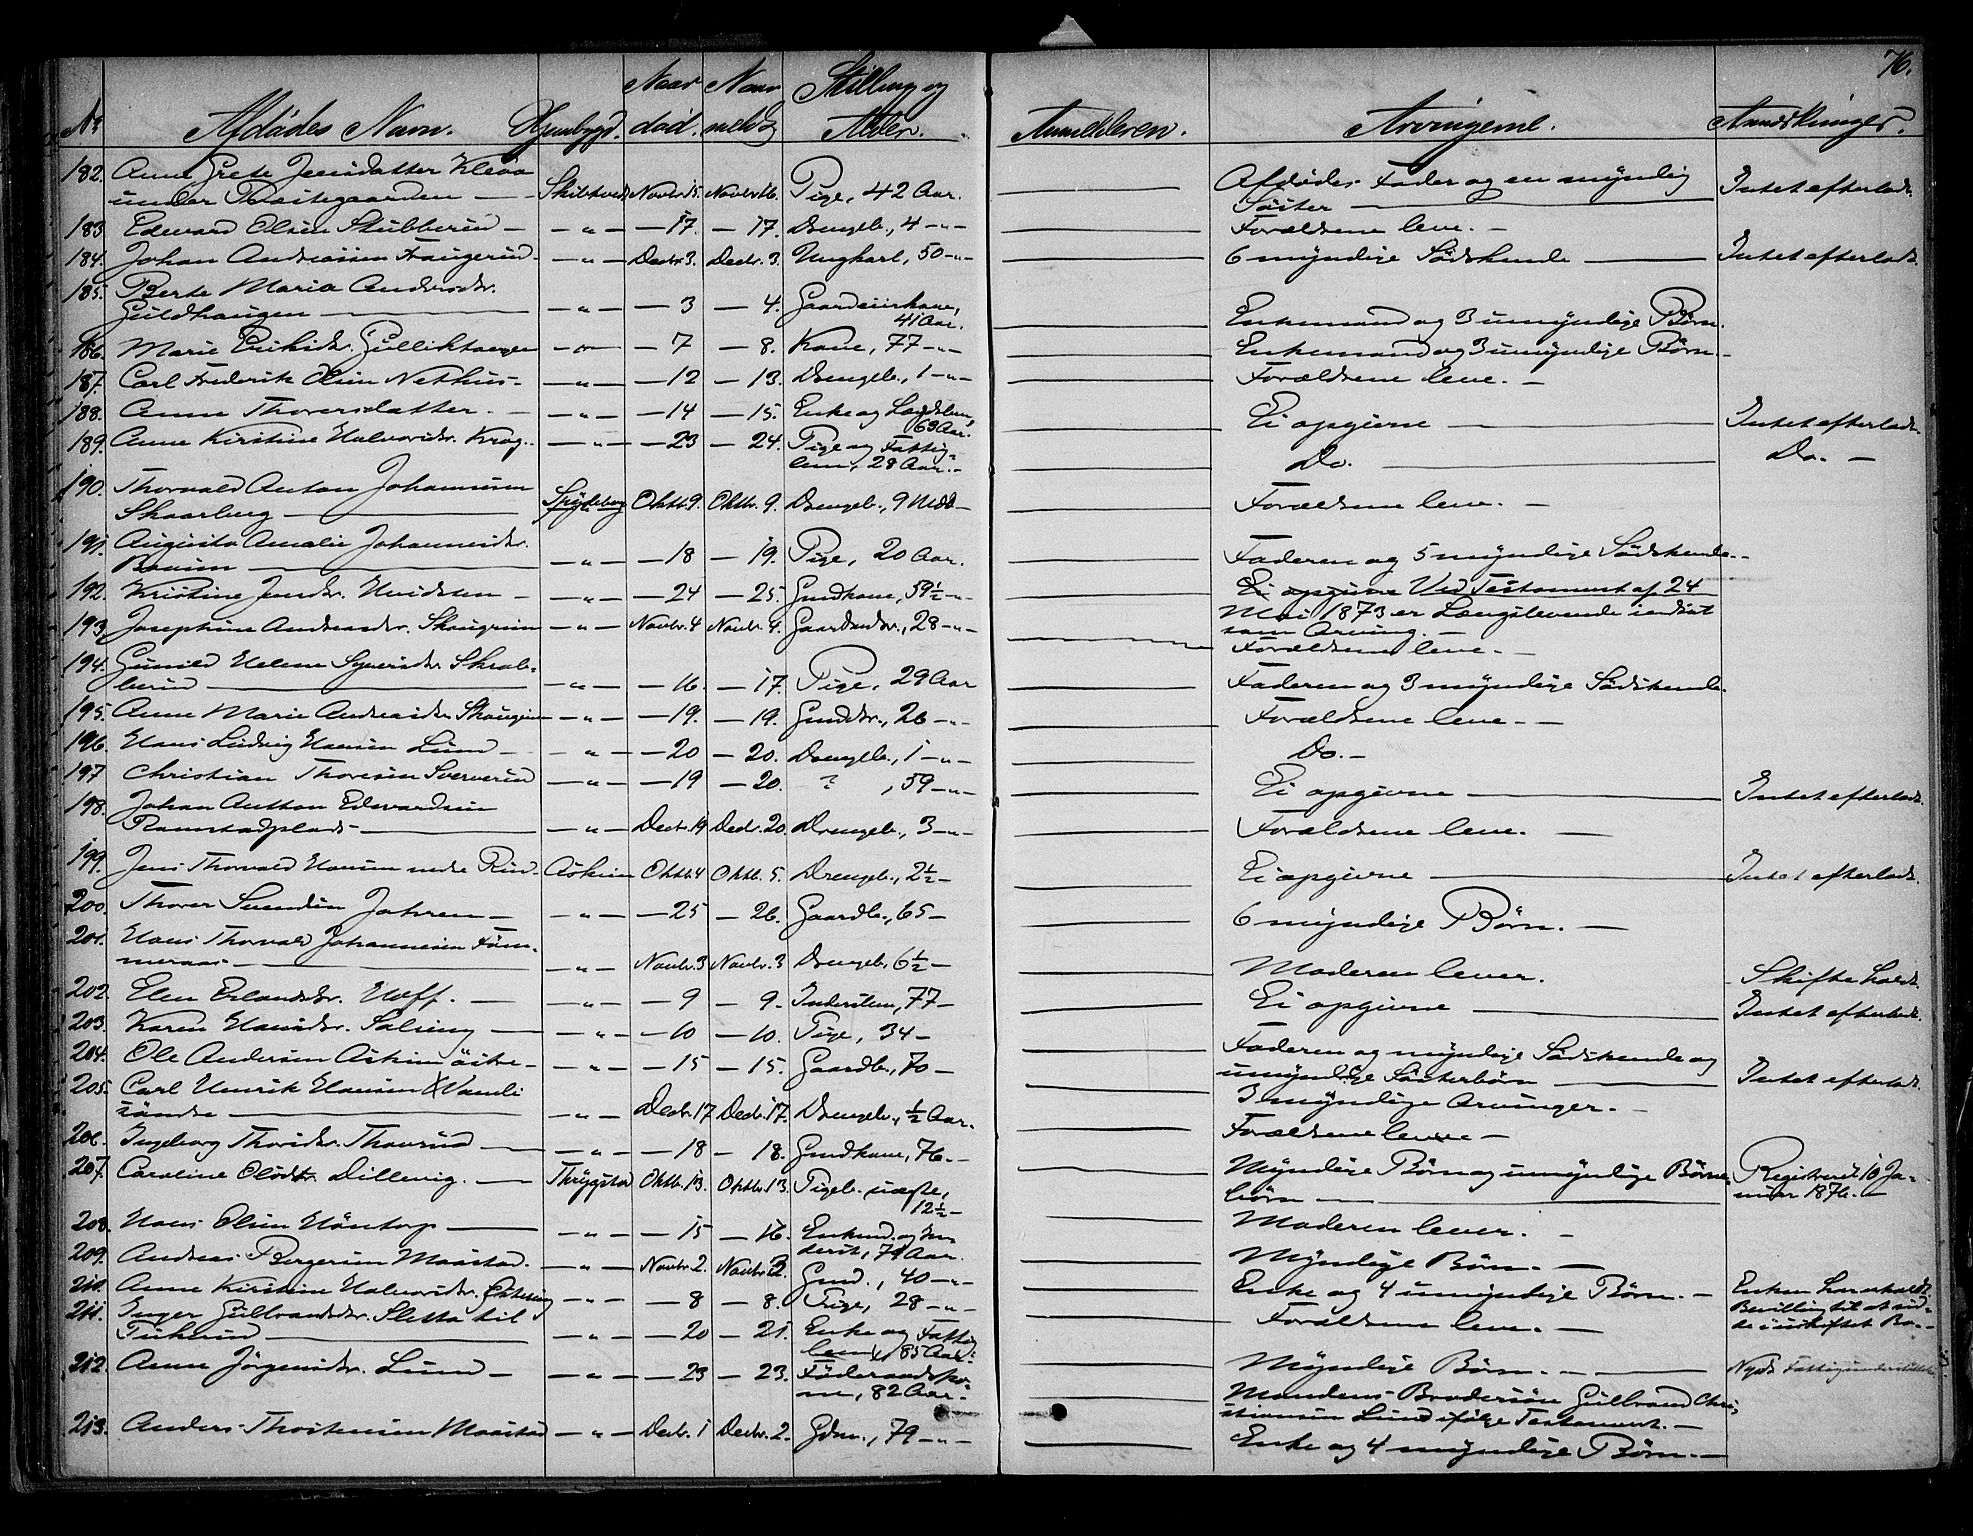 76.
No Afdødes Navn. Hjembygd. Naar død. Naar meldt Stilling og Alder. Anmelderen. Arvingerne. Anmærkninger.
182. Anne Grete Jensdatter Kleva Afdødes Fader og en myndig
under Præstegaarden — Skibtvedt Novbr 15. Novbr 16. Pige, 42 Aar. Søster — Intet efterladt.
183 Edevard Olsen Stubberud — — " — — 17. — 17. Drengeb., 4 — " — Forældrene leve. —
184. Johan Andreasen Haugerud. — " — Decbr. 3. Decbr. 3. Ungkarl, 50 — " — 6 myndige Sødskende — Intet efterladt.
185. Berte Maria Andersdr.
Guldhaugen — — " — — 3 — 4. Gaardeierkone, 41 Aar. Enkemand og 3 umyndige Børn.
186. Marie Eriksdr. Gulliktangen — " — — 7 — 8. Kone, 77 — " — Enkemand og 3 umyndige Børn. —
187. Carl Frederik Olsen Nethus — — " — — 12 — 13. Drengeb., 1 — " — Forældrene leve. —
188. Anne Thoversdatter. — — " — — 14 — 15. Enke og Lægdslem, 63 Aar. Ei opgivne — Intet efterladt.
189. Anne Kirstine Halvorsdr. Krog. — " — — 23 — 24. Pige og Fattig-
lem, 28 Aar. — Do. — Do. —
190. Thorvald Anton Johannesen
Skaarberg — Spydeberg Oktb. 9. Oktbr. 9. Drengeb., 9 Mdd — Forældrene leve. —
191. Augusta Amalie Johannesdr.
— — " — — 18 — 19. Pige, 20 Aar. Faderen og 5 myndige Sødskende. —
192. Kristine Jensdr. Hvidsten — — " — — 24 — 25. Gmdkone, 59½ — " — Ei opgivne Ved Testament af 24
Mai 1873 er Længstlevende indsat
som Arving. —
193. Josephine Andreasdr. Skaugrim — " — Novbr. 4 Novbr. 4. Gaardmdr., 28 — " — Forældrene leve. —
194. Gunild Helene Syversdr. Skral-
berud — — " — — 16. — 17. Pige, 29 Aar Faderen og 3 myndige Sødskende.
195. Anne Marie Andreasdr. — " — — 19. — 19. Gmddr., 26 — " — Forældrene leve. —
196. Hans Ludvig Hansen Lund — — " — — 20 — 20. Drengeb., 1 — " — Do. —
197 Christian Thoresen Sververud — " — — 19 — 20. ? , 59 — " — Ei opgivne — Intet efterladt.
198. Johan Anthon Edevardsen
Ramstadplads — — " — Decbr. 19 Decbr. 20. Drengeb., 3 — " — Forældrene leve. —
199. Jens Thorvald Hansen nedre Rud. Askim Oktb. 4 Oktb. 5. Drengeb., 2½ — Ei opgivne — Intet efterladt.
200. Thover Svendsen Jahren — — " — — 25 — 26. Gaardb., 65 — 6 myndige Børn. —
201. Hans Thorvald Johannesen Tøm-
meraas — — " — Novbr. 3 Novbr. 3 Drengeb. 6½ — Moderen lever. Skifte holdt.
202. Elen Erlandsdr. Hoff. — — " — — 9 — 9. Inderstem, 77 — Ei opgivne — Intet efterladt.
203. Karen Hansdr. Solseng — — " — — 10 — 10. Pige, 34 — Faderen og myndige Sødskende og
umyndige Søsterbørn — Intet efterladt.
204. Ole Andersen Askim østre — — " — — 15 — 15. Gaardb., 70 — 3 myndige Arvinger. —
205. Carl Henrik Hansen Vamli
søndre — — " — Decbr. 17 Decbr. 17. Drengeb., ½ Aar. Forældrene leve —
206. Ingeborg Thorsdr. Thovsrud — — " — — 18 — 18. Gmdkone, 76 — Myndige Børn og umyndige Børne-
børn — Registreret 10 Ja-
nuar 1876. —
207. Caroline Olsdtr. Dillevig. — Thrygstad Oktb. 13. Oktbr. 13. Pigeb. uægte, 12½ — Moderen lever. —
208. Hans Olsen Høntorp — — " — — 15 — 16. Enkmd. og In-
derst, 79 Aar. Myndige Børn. —
209. Andreas Borgersen Maastad. — " — Novbr. 2. Novbr. 2. Gmd., 40 — " — Enke og 4 umyndige Børn. — Enken har erholdt
Bevilling til at sid-
de i uskiftet Bo. —
210. Anne Kirstine Halvorsdr. — " — — 8 — 8. Pige, 28 — " — Forældrene leve. —
211. Inger Gulbrandsdr. Sletta til
— — " — — 20 — 21. Enke og Fattig-
lem, 85 Aar. Myndige Børn. — Nyds Fattigunderstøttelse
212. Anne Jørgensdr. Lund — — " — — 23 — 23. Føderaadsko-
ne, 82 Aar. Mandens Brodersøn Gulbrand Chri-
stiansen Lund ifølge Testament. —
213. Anders Thostensen Maastad — " — Decbr. 1 Decbr. 2. Gdm., 79 — " — Enke og 4 myndige Børn. —